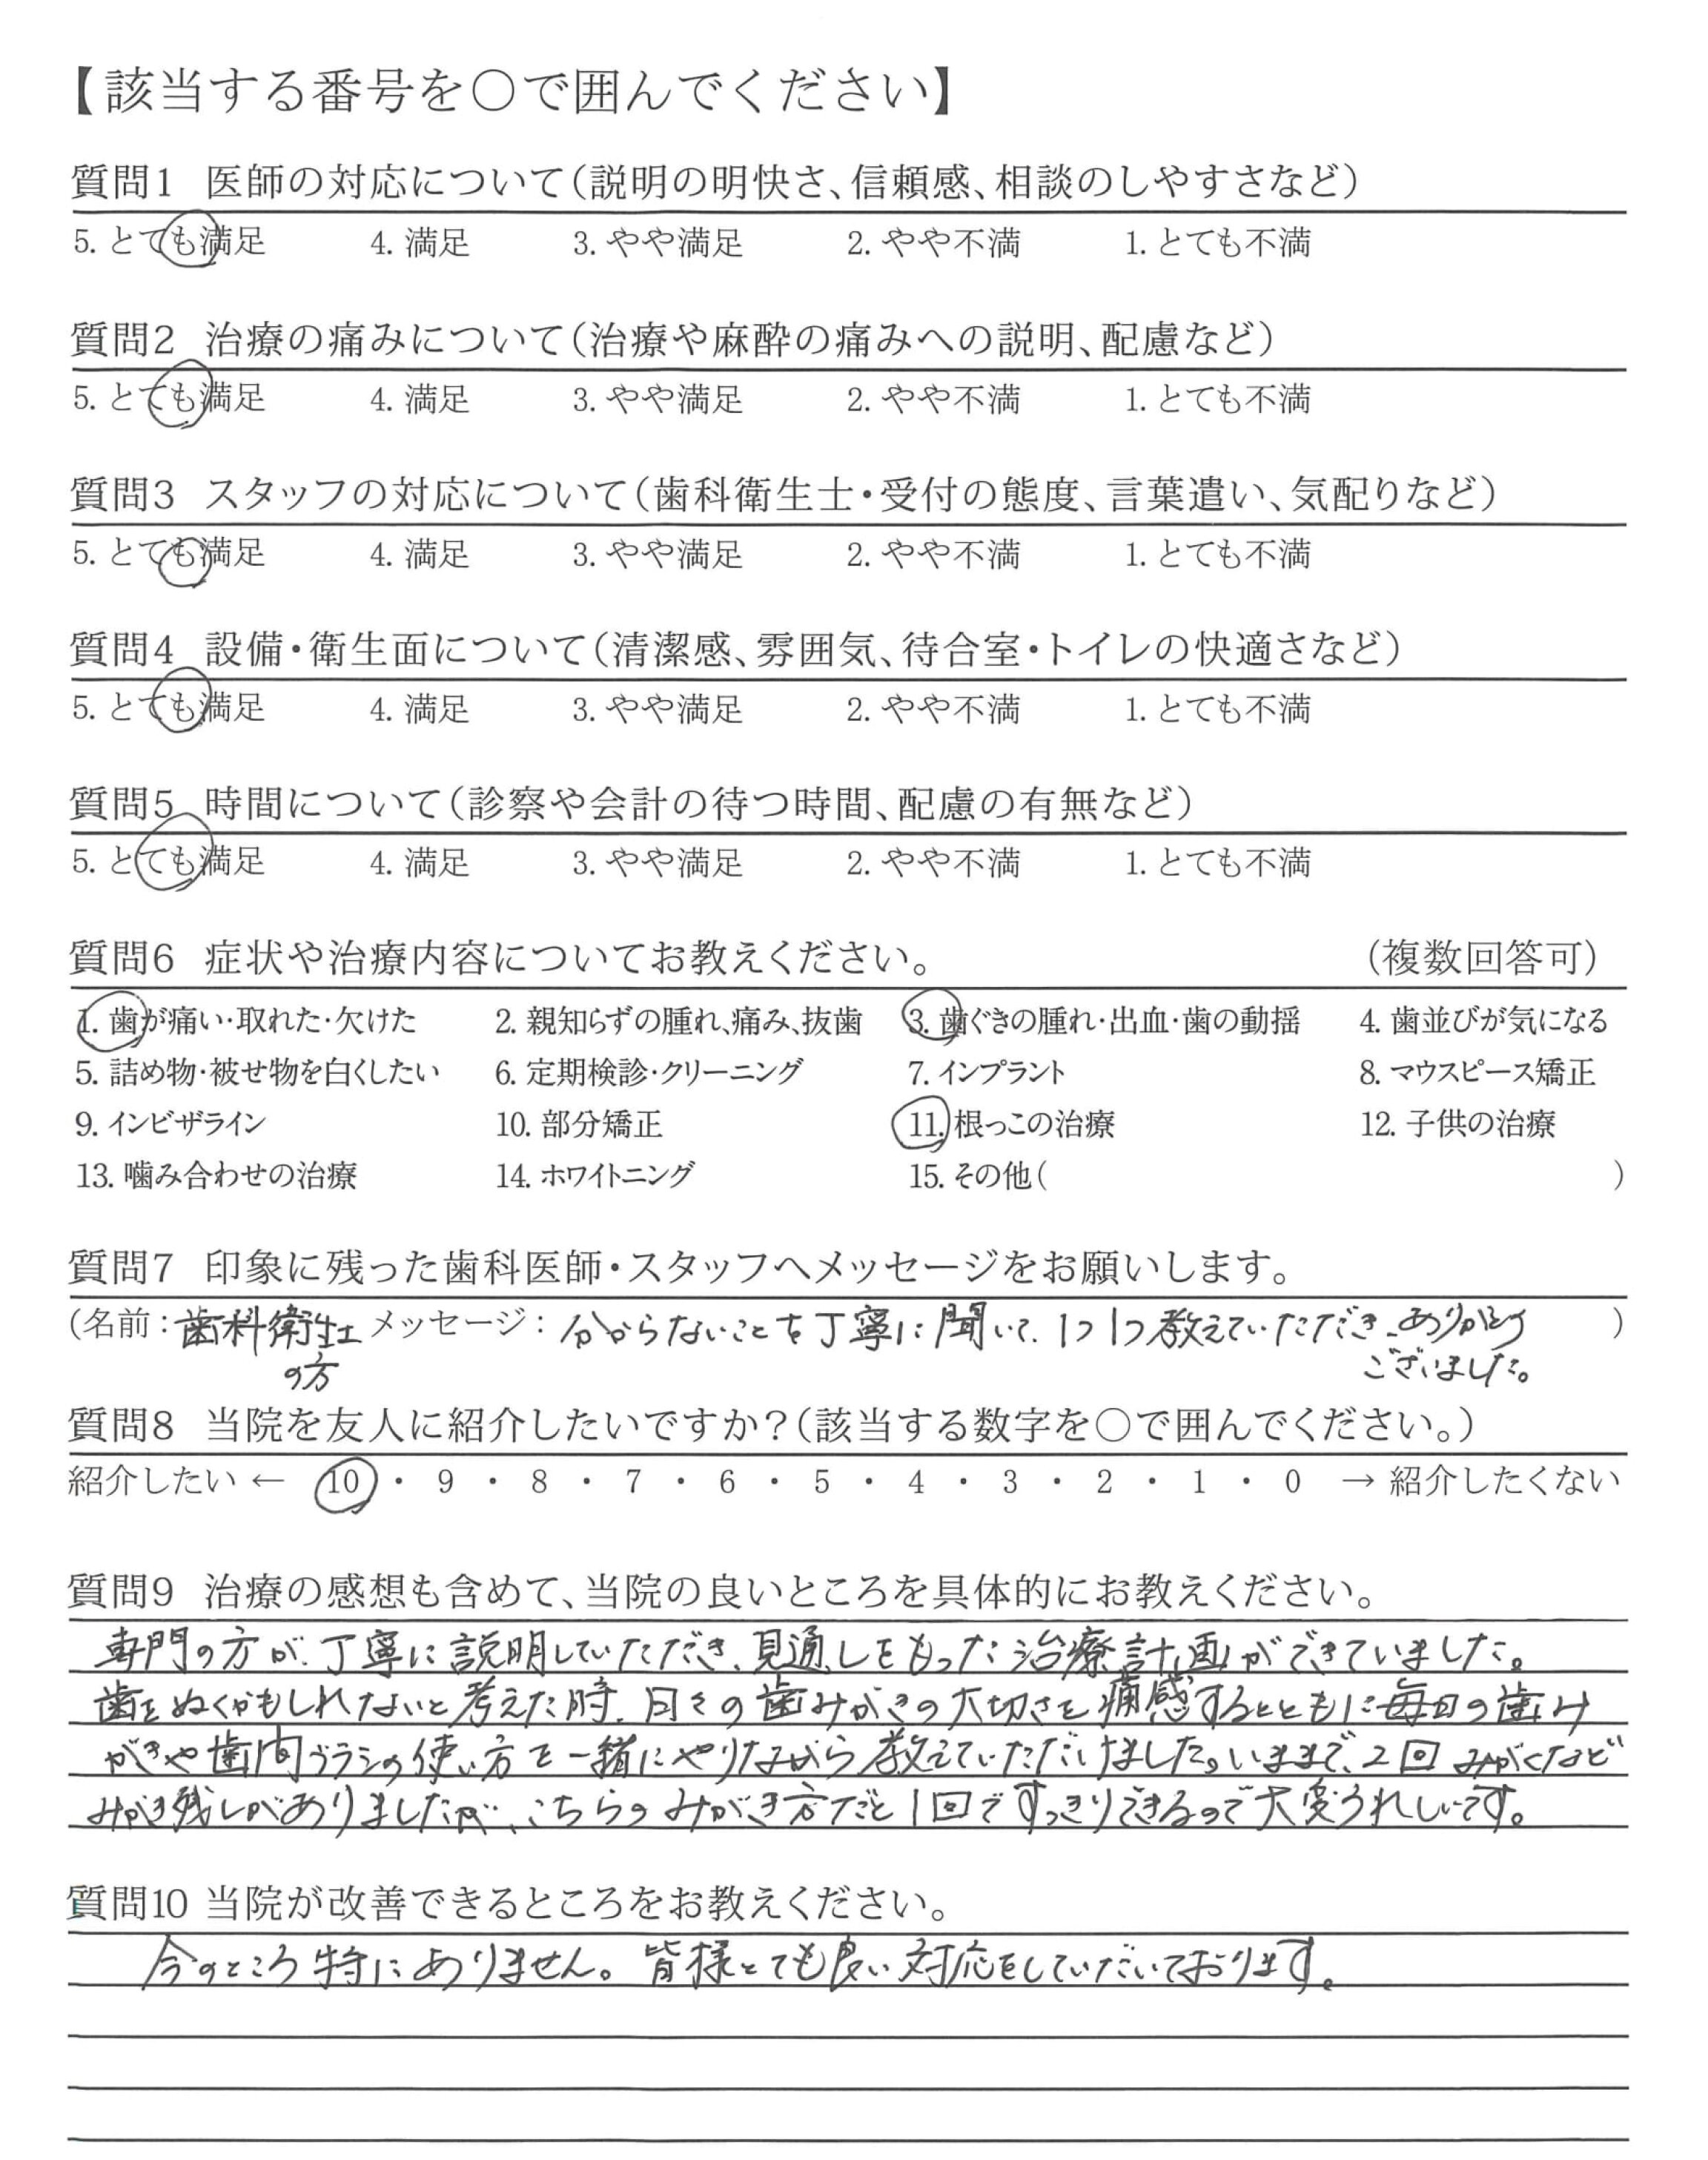 【該当する番号を○で囲んでください】
質問1 医師の対応について(説明の明快さ、信頼感、相談のしやすさなど)
5. とても満足 4. 満足 3. やや満足 2. やや不満 1. とても不満
質問2 治療の痛みについて(治療や麻酔の痛みへの説明、配慮など)
5. とても満足 4. 満足 3. やや満足 2. やや不満 1. とても不満
質問3 スタッフの対応について(歯科衛生士・受付の態度、言葉遣い、気配りなど)
5. とても満足 4. 満足 3. やや満足 2. やや不満 1. とても不満
質問4 設備・衛生面について(清潔感、雰囲気、待合室・トイレの快適さなど)
5. とても満足 4. 満足 3. やや満足 2. やや不満 1. とても不満
質問5 時間について(診察や会計の待つ時間、配慮の有無など)
5. とても満足 4. 満足 3. やや満足 2. やや不満 1. とても不満
質問6 症状や治療内容についてお教えください。 (複数回答可)
1. 歯が痛い・取れた・欠けた 2. 親知らずの腫れ、痛み、抜歯 3. 歯ぐきの腫れ・出血・歯の動揺 4. 歯並びが気になる
5. 詰め物・被せ物を白くしたい 6. 定期検診・クリーニング 7. インプラント 8. マウスピース矯正
9. インビザライン 10. 部分矯正 11. 根っこの治療 12. 子供の治療
13. 噛み合わせの治療 14. ホワイトニング 15. その他( )
質問7 印象に残った歯科医師・スタッフへメッセージをお願いします。
(名前：歯科衛生士 メッセージ：分からないことを丁寧に聞いて、1つ1つ教えていただき、ありがとう )
の方 ございました。
質問8 当院を友人に紹介したいですか？(該当する数字を○で囲んでください。)
紹介したい ← 10 ・ 9 ・ 8 ・ 7 ・ 6 ・ 5 ・ 4 ・ 3 ・ 2 ・ 1 ・ 0 → 紹介したくない
質問9 治療の感想も含めて、当院の良いところを具体的にお教えください。
専門の方が、丁寧に説明していただき、見通しをもった治療計画ができていました。
歯をぬくかもしれないと考えた時、日々の歯みがきの大切さを痛感するとともに毎日の歯み
がきや歯間ブラシの使い方を一緒にやりながら教えていただけました。いままで、2回みがくなど
みがき残しがありましたが、こちらのみがき方だと1回ですっきりできるので大変うれしいです。
質問10 当院が改善できるところをお教えください。
今のところ特にありません。皆様とても良い対応をしていだいております。